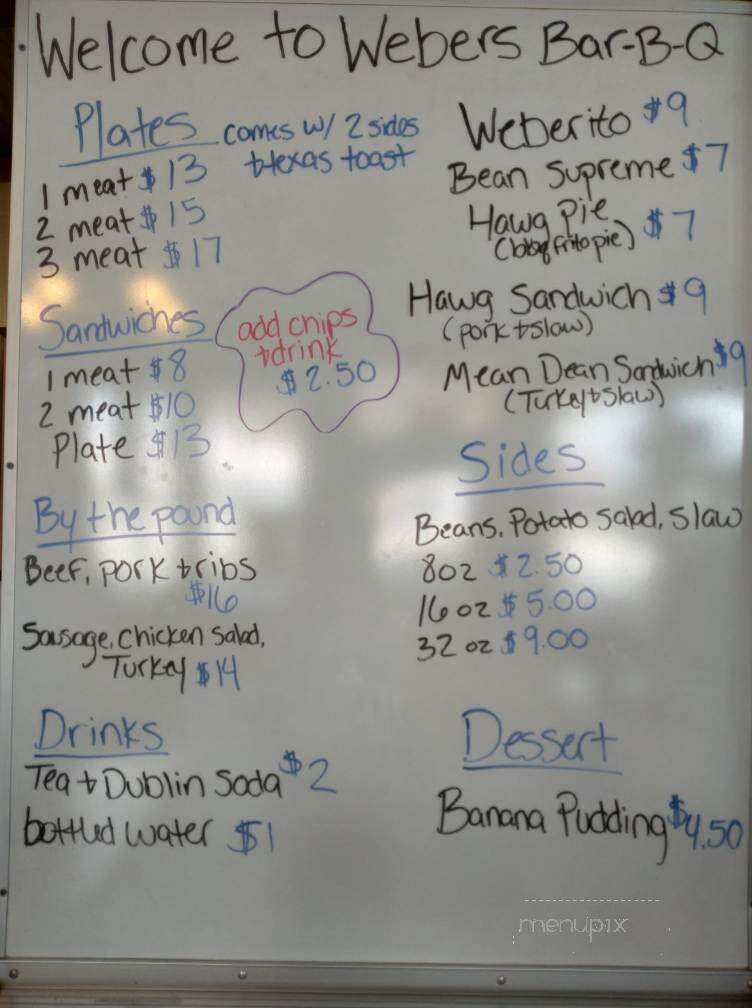 Welcome to Webers Bar-B-Q
Plates comes w/ 2 sides
+ texas toast
1 meat $13
2 meat $15
3 meat $17
Sandwiches
1 meat $8
2 meat $10
Plate $13
add chips
+ drink
$2.50
By the pound
Beef, pork + ribs
$16
Sausage, chicken salad,
Turkey $14
Drinks
Tea + Dublin Soda $2
bottled water $1
Weberito $9
Bean Supreme $7
Hawg Pie $7
(bbq frito pie)
Hawg Sandwich $9
(pork + slaw)
Mean Dean Sandwich $9
(Turkey + Slaw)
Sides
Beans, Potato Salad, Slaw
8oz $2.50
16 oz $5.00
32 oz $9.00
Dessert
Banana Pudding $4.50
menupix